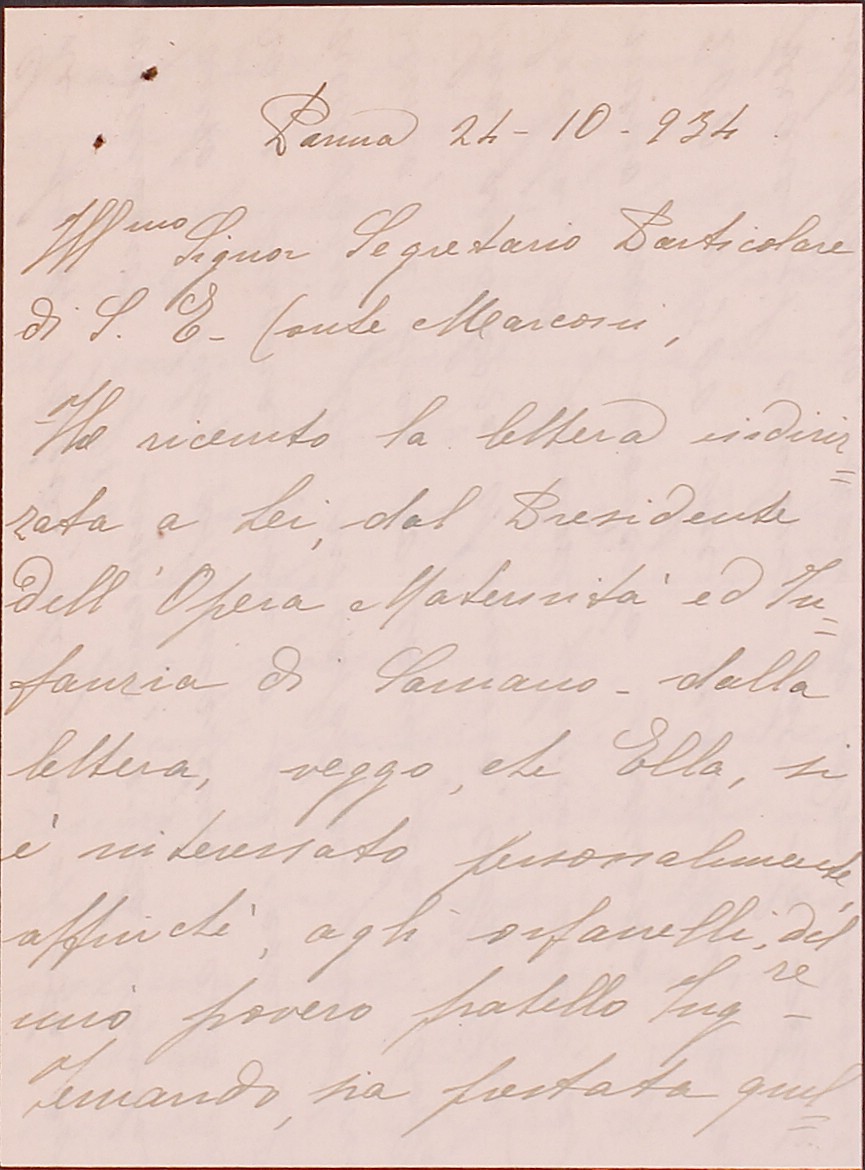 Parma 24-10-934
Ill^mo Signor Segretario Particolare
di S. E. Conte Marconi,
Ho ricevuto la lettera indiriz=
zata a Lei, dal Presidente
dell'Opera Maternità ed In=
fanzia di Sarnano - dalla
lettera, veggo, che Ella, si
è interessato personalmente,
affinchè, agli orfanelli, del
mio povero fratello Ing^re
sia portata quel=